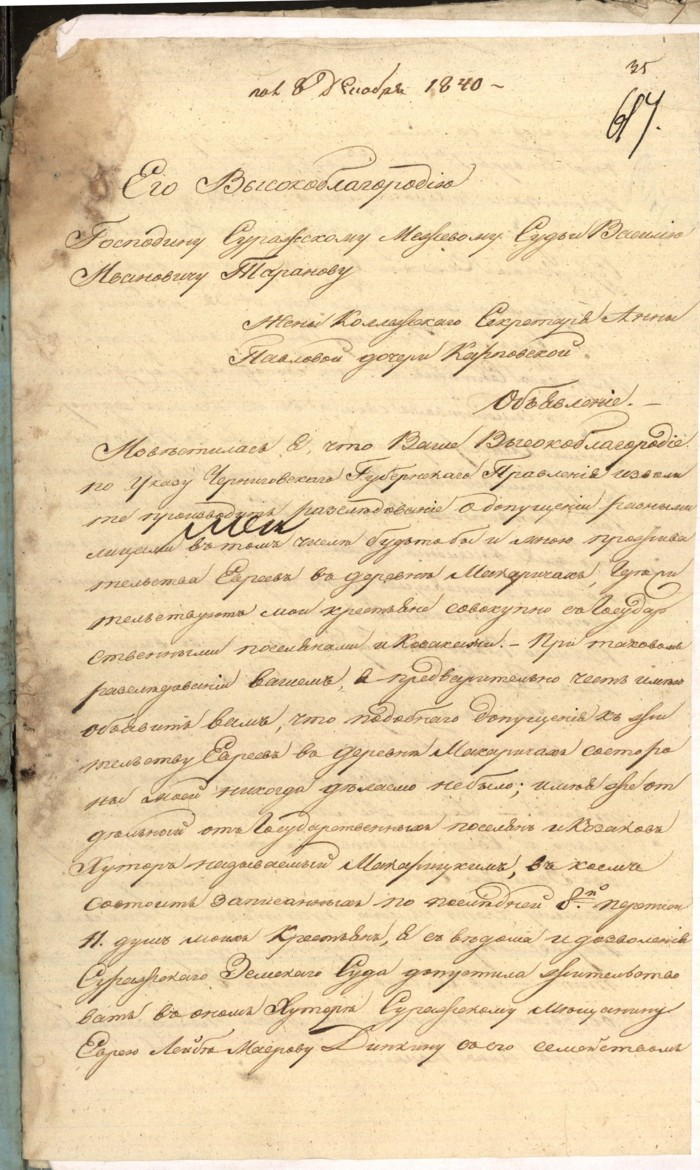 35
пол 8 Декабря 1840 –
617.
Его Высокоблагородію
Господину Суражскому Межевому Судьи Василію
Ивановичу Таранову
Жены Коллежскаго Секретаря Анны
Павловой дочери Карповской
Объявленіе. –
Извѣстилась я, что Ваше Высокоблагородіе
по Указу Черниговскаго Губернскаго Правленія изволи
те производить разслѣдованіе о допущеніи разными
лицами въ томъ числѣ будьтобы и мною прожива
тельства Евреевъ въ деревнѣ Макаричахъ, гдѣ жи
тельствуютъ мои крестьяне совокупно съ Государ
ственными поселянами и Козаками. – При таковомъ
разслѣдованіи вашемъ, я предварительно честь имѣю
объявить вамъ, что подобнаго допущенія къ жи
тельству Евреевъ въ деревнѣ Макаричахъ состоро
ны моей никогда дѣлаемо небыло; имѣя же от
дѣльной отъ Государственныхъ поселянъ и Козаковъ
Хуторъ называемый Макарицкимъ, въ коемъ
состоитъ записанныхъ по послѣдней 8й переписи
11. душъ моихъ Крестьянъ, я съ вѣдома и дозволенія
Суражскаго Земскаго Суда допустила жительство
вать въ ономъ Хуторѣ Суражскому мѣщанину
Еврею Лейбѣ Маерову Динкину съ его семействомъ